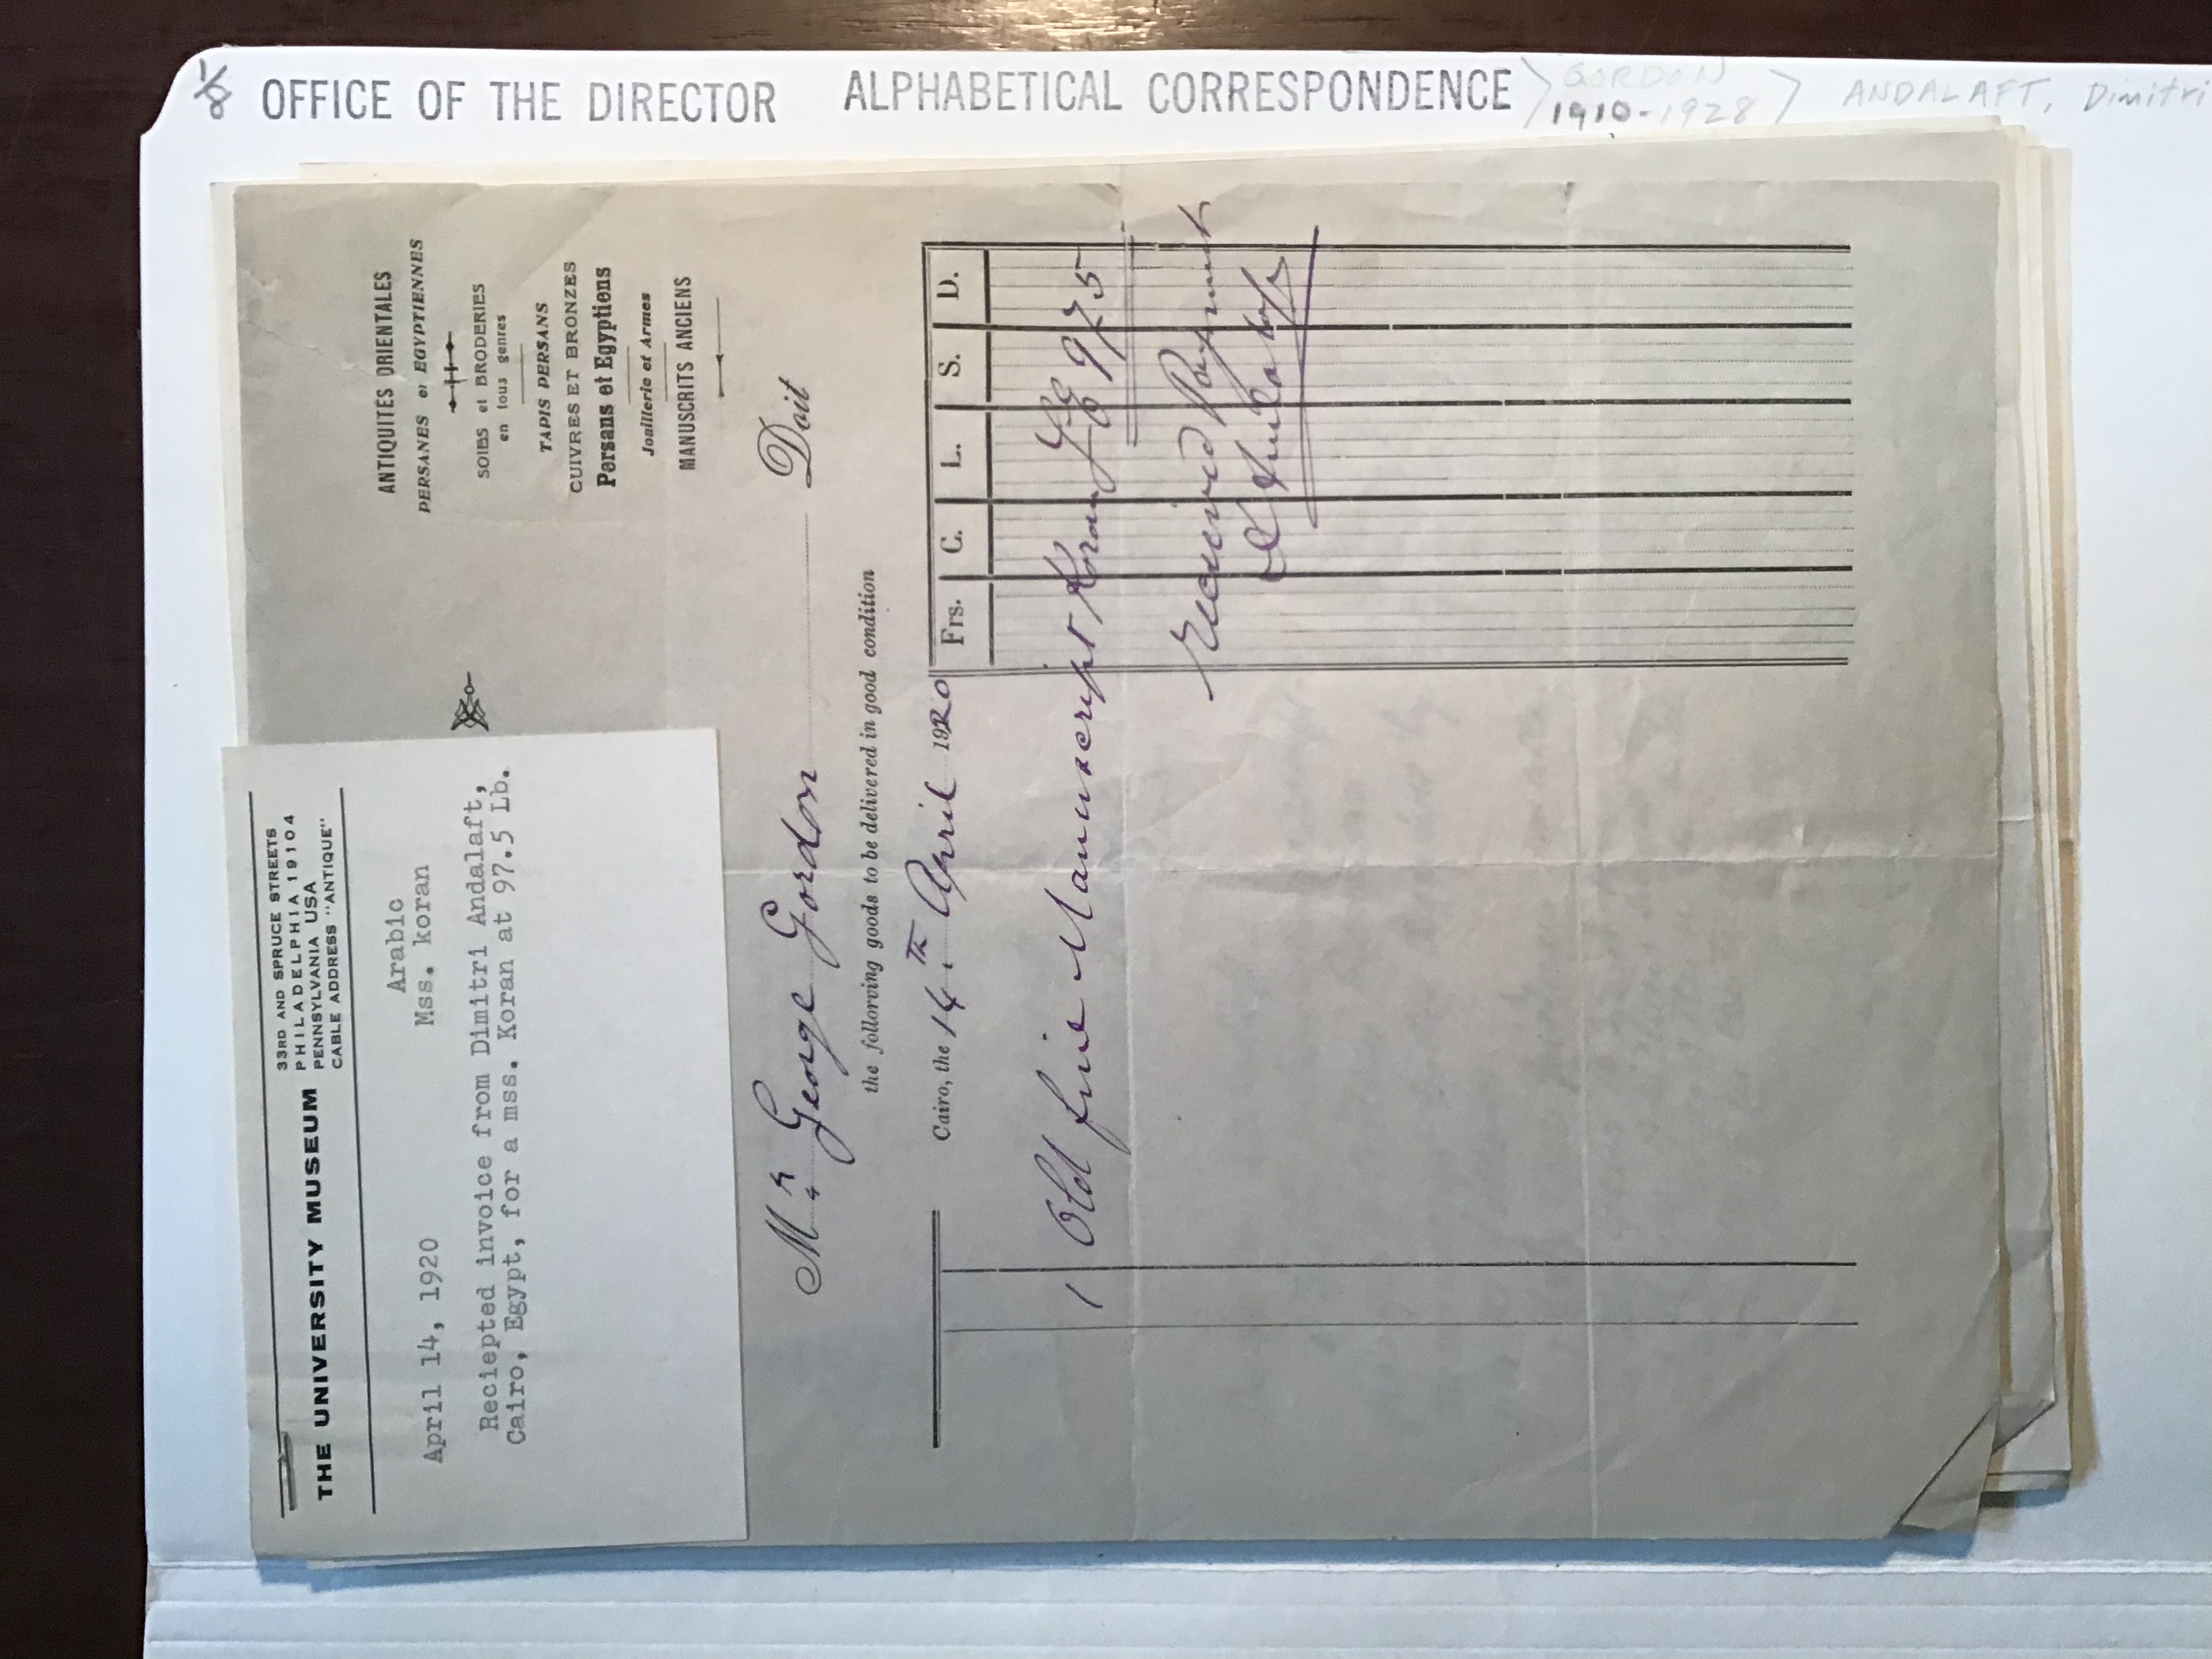 THE UNIVERSITY MUSEUM
33RD AND SPRUCE STREETS
PHILADELPHIA 19104
PENNSYLVANIA USA
CABLE ADDRESS "ANTIQUE"
Arabic
April 14, 1920 Mss. koran
Reciepted invoice from Dimitri Andalaft,
Cairo, Egypt, for a mss. Koran at 97.5 Lb.
ANTIQUITÉS ORIENTALES
PERSANES et EGYPTIENNES
SOIES et BRODERIES
en tous genres
TAPIS PERSANS
CUIVRES ET BRONZES
Persans et Egyptiens
Joaillerie et Armes
MANUSCRITS ANCIENS
Mr George Gordon Doit
the follorving goods to be delivered in good condition
Cairo, the 14th April 1920
Frs. C. L. S. D.
1 Old fine Manuscript Koran L.E 975
Received Payment
D Andalaft
OFFICE OF THE DIRECTOR ALPHABETICAL CORRESPONDENCE
GORDON
1910-1928
ANDALAFT, Dimitri